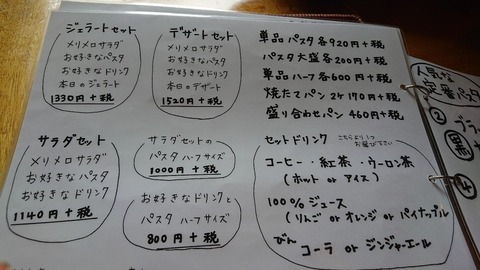 ジェラートセット
メリメロサラダ
お好きなパスタ
お好きなドリンク
本日のジェラート
1330円+税
デザートセット
メリメロサラダ
お好きなパスタ
お好きなドリンク
本日のデザート
1520円+税
サラダセット
メリメロサラダ
お好きなパスタ
お好きなドリンク
1140円+税
サラダセットの
パスタ ハーフサイズ
1000円+税
お好きなドリンクと
パスタ ハーフサイズ
800円+税
単品パスタ各920円+税
パスタ大盛各200円+税
単品ハーフ各600円+税
焼たてパン 2ケ 170円+税
盛り合わせパン 460円+税
セットドリンク
こちらより1つ
お選び下さい
コーヒー・紅茶・ウーロン茶
(ホット or アイス)
100%ジュース
(りんご or オレンジ or パイナップル
びん
コーラ or ジンジャーエール
人気な
定番パスタ
②
④